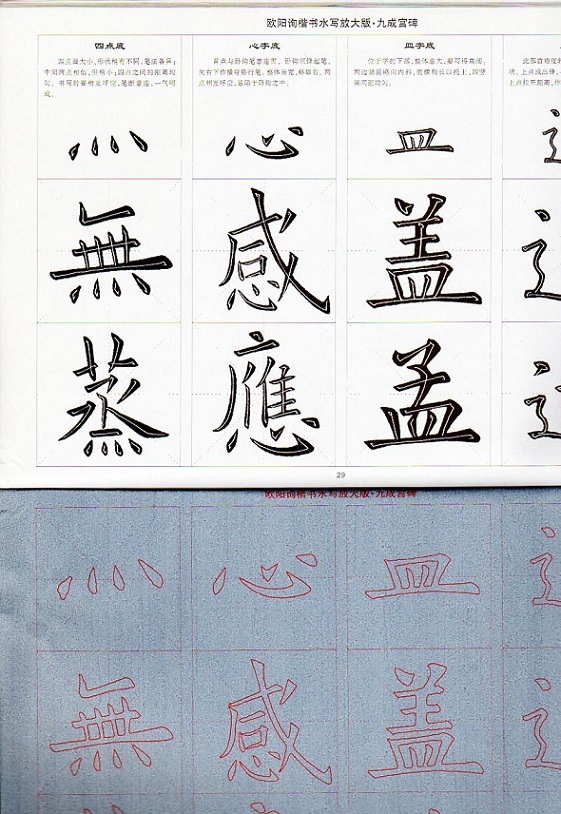 欧阳询楷书水写放大版·九成宫碑
四点底
四点画大小、形状稍有不同,笔法各异;
中间两点相似,但稍小;四点之间的距离均
匀。书写时要相互呼应,笔断意连,一气呵
成。
灬
無
蒸
心字底
首点与卧钩笔意连贯,卧钩顺锋起笔,
末两点相互呼应,
心
感
應
皿字底
位于字的下部,整体扁大,要写得宽阔,
两边竖画略向内斜,底横稍长以托上,四竖
画间距均匀。
皿
盖
孟
29
欧阳询楷书水写放大版·九成宫碑
灬
心
皿
無
感
盖